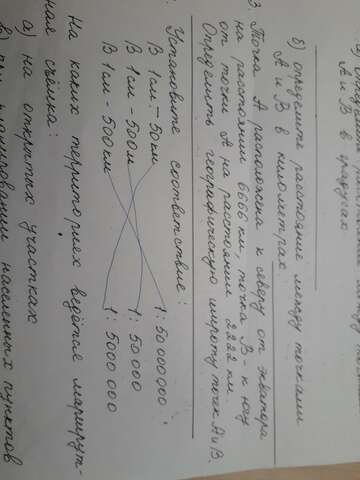 А и В в градусах
б) определите расстояние между точками
А и В в километрах
3. Точка А расположена к северу от экватора
на расстоянии 6666 км, точка В - к югу
от точки А на расстоянии 2222 км.
Определить географическую широту точек А и В.
Установите соответствие:
В 1см - 50 км 1: 50 000 000
В 1см - 500м 1: 50 000
В 1см - 500км 1: 5000 000
На каких территориях ведётся маршрут-
ная съёмка:
а) на открытых участках
б) при планировании населенных пунктов